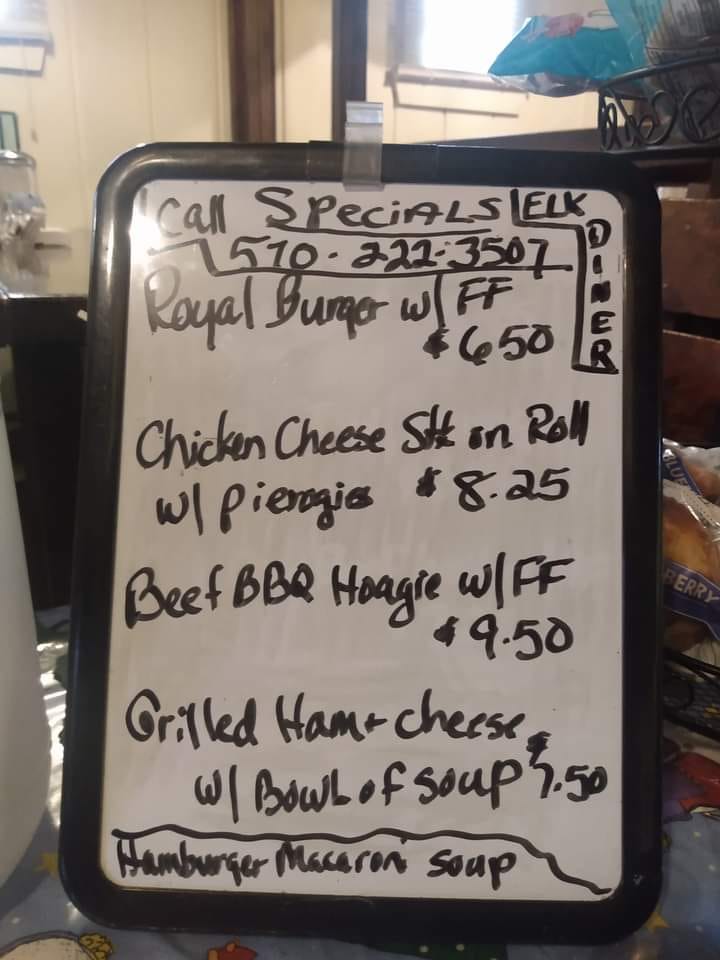 Call Specials ELK
DINER
570-222-3507
Royal Burger w/ FF
$6.50
Chicken Cheese Stk on Roll
w/ Pierogies $8.25
Beef BBQ Hoagie w/ FF
$9.50
Grilled Ham + cheese
w/ Bowl of soup $7.50
Hamburger Macaroni soup
BLUE
BERRY